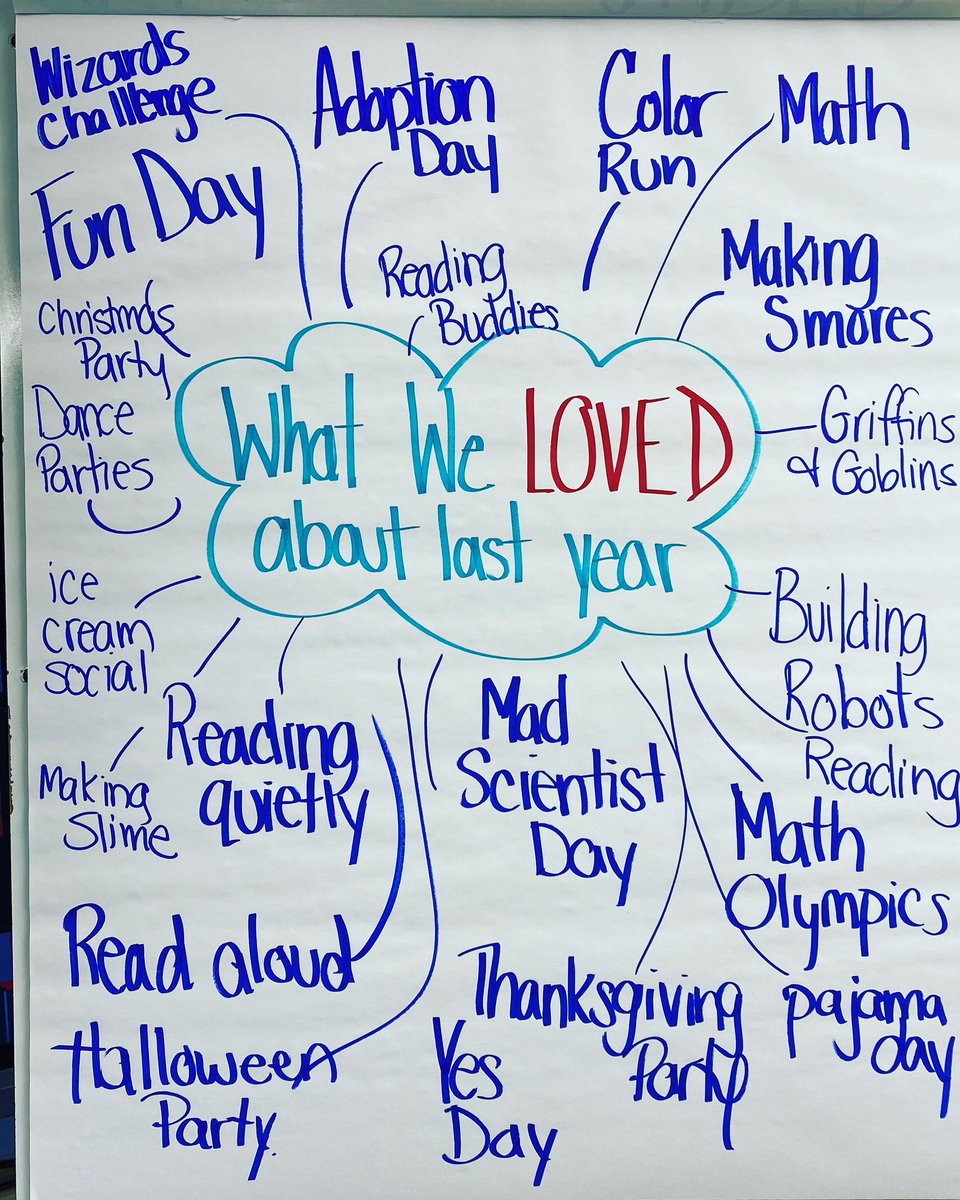 Wizards
Challenge
Adoption
Day
Color
Run
Math
Fun Day
Reading
Buddies
Making
Smores
Christmas
Party
What We LOVED
about last year
Griffins
& Goblins
Dance
Parties
ice
cream
social
Building
Robots
Reading
Making
Slime
Reading
quietly
Mad
Scientist
Day
Math
Olympics
Read aloud
Thanksgiving
Party
pajama
day
Halloween
Party
Yes
Day